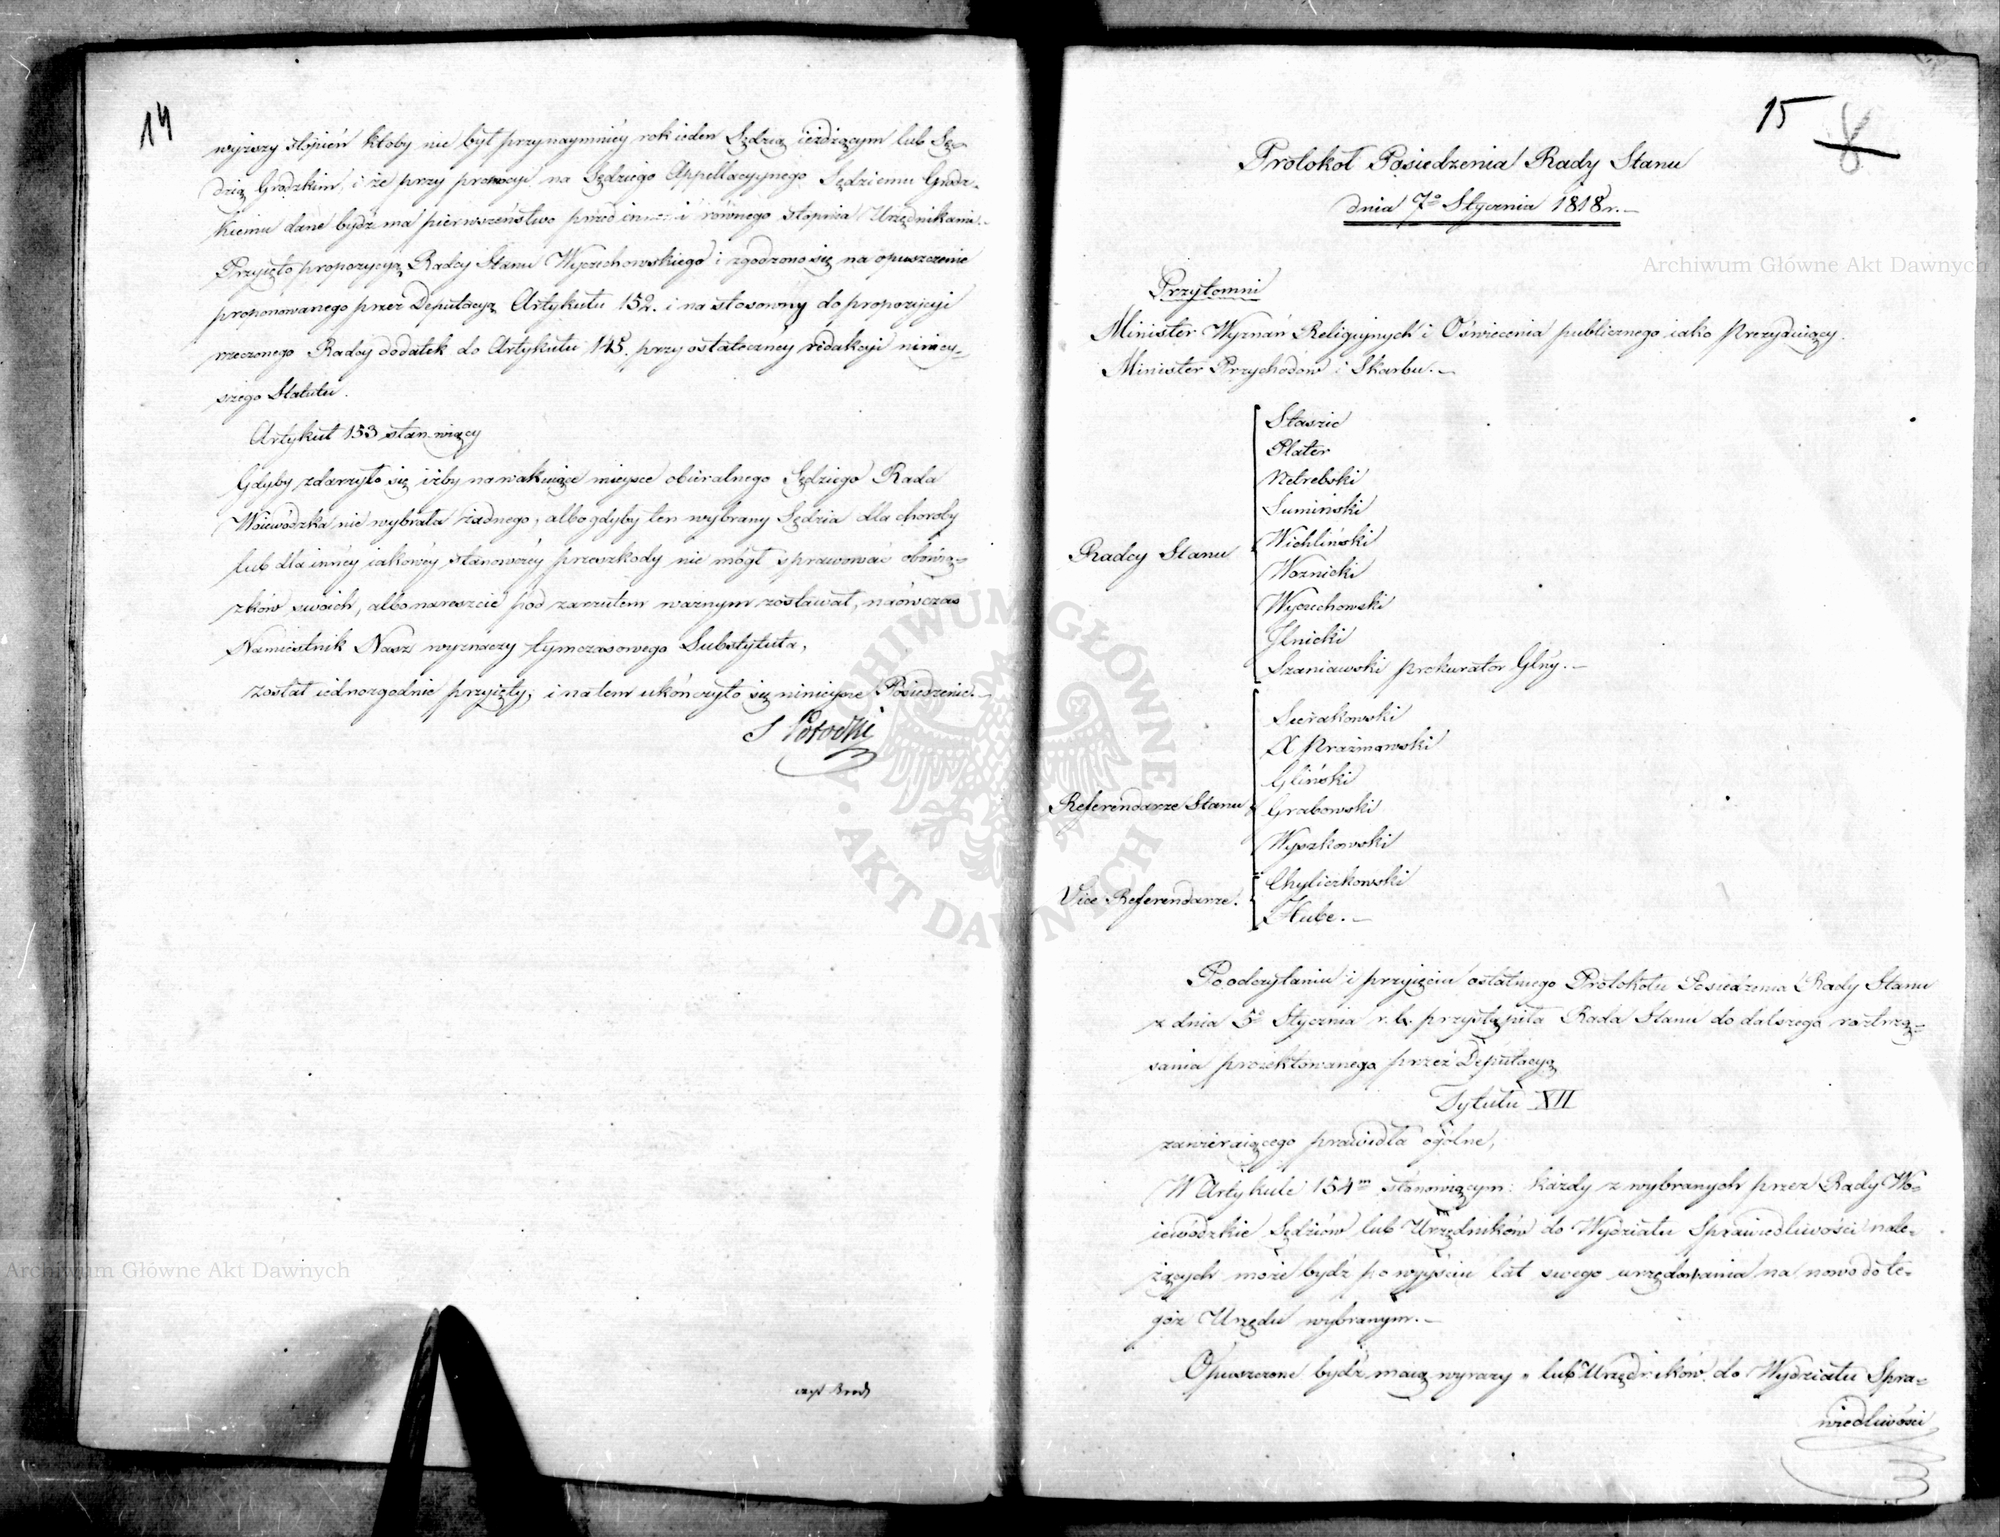 14
wyższy stopień ktoby nie był przynaymniéy rok ieden Sędzią ieżdżącym lub Sę-
dzią Grodzkim, i że przy promocyi na Sędziego Appellacyynego Sędziemu Grodz-
kiemu dane bydź ma pierwszeństwo przed innemi równego stopnia Urzędnikami.-
Przyięto propozycyą Radcy Stanu Wyczechowskiego i zgodzono się na opuszczenie
proponowanego przez Deputacyą Artykułu 152. i na stosowny do propozycyi
rzeczonego Radcy dodatek do Artykułu 145. przy ostatecznéy redakcyi niniey-
szego Statutu.
Artykuł 153 stanowiący
Gdyby zdarzyło się iżby na wakuiące mieysce obieralnego Sędziego Rada
Woiewódzka nie wybrała żadnego, albo gdyby ten wybrany Sędzia dla choroby
lub dla innéy iakowéy stanowczéy przeszkody nie mógł sprawować obowią-
zków swoich, albo nareszcie pod zarzutem ważnym zostawał, naówczas
Namiestnik Nasz wyznaczy tymczasowego Substytuta,
został iednozgodnie przyięty, i na tem ukończyło się ninieysze Posiedzenie.-
S Potocki
15
8
Protokół Posiedzenia Rady Stanu
dnia 7° Stycznia 1818 r.-
Przytomni
Minister Wyznań Religiynych i Oświecenia publicznego iako Prezyduiący.
Minister Przychodów i Skarbu.-
Radcy Stanu
Staszic
Plater
Netrebski
Sumiński
Wichliński
Woznicki
Wyczechowski
Ilnicki
Szaniawski Prokurator Glny.-
Referendarze Stanu
Sierakowski
X Prażmowski
Gliński
Grabowski
Wyszkowski
Vice Referendarze.
Chyliczkowski
Hube.-
Po odczytaniu i przyięciu ostatniego Protokołu Posiedzenia Rady Stanu
z dnia 5° Stycznia r. b. przystąpiła Rada Stanu do dalszego roztrzą-
sania proiektowanego przez Deputacyą
Tytułu XII
zawieraiącego prawidła ogólne,
W Artykule 154m stanowiącym: każdy z wybranych przez Rady Wo-
iewódzkie Sędziów lub Urzędników do Wydziału Sprawiedliwości nale-
żących może bydź po wyyściu lat swego urzędowania na nowo do te-
goż Urzędu wybranym.-
Opuszczone bydź maią wyrazy „ lub Urzędników do Wydziału Spra-
wiedliwości
Archiwum Główne Akt Dawnych
Archiwum Główne Akt Dawnych
ARCHIWUM GŁÓWNE AKT DAWNYCH